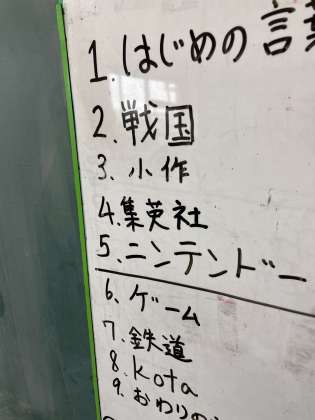 1. はじめの言葉
2. 戦国
3. 小作
4. 集英社
5. ニンテンドー
6. ゲーム
7. 鉄道
8. Kota
9. おわりの